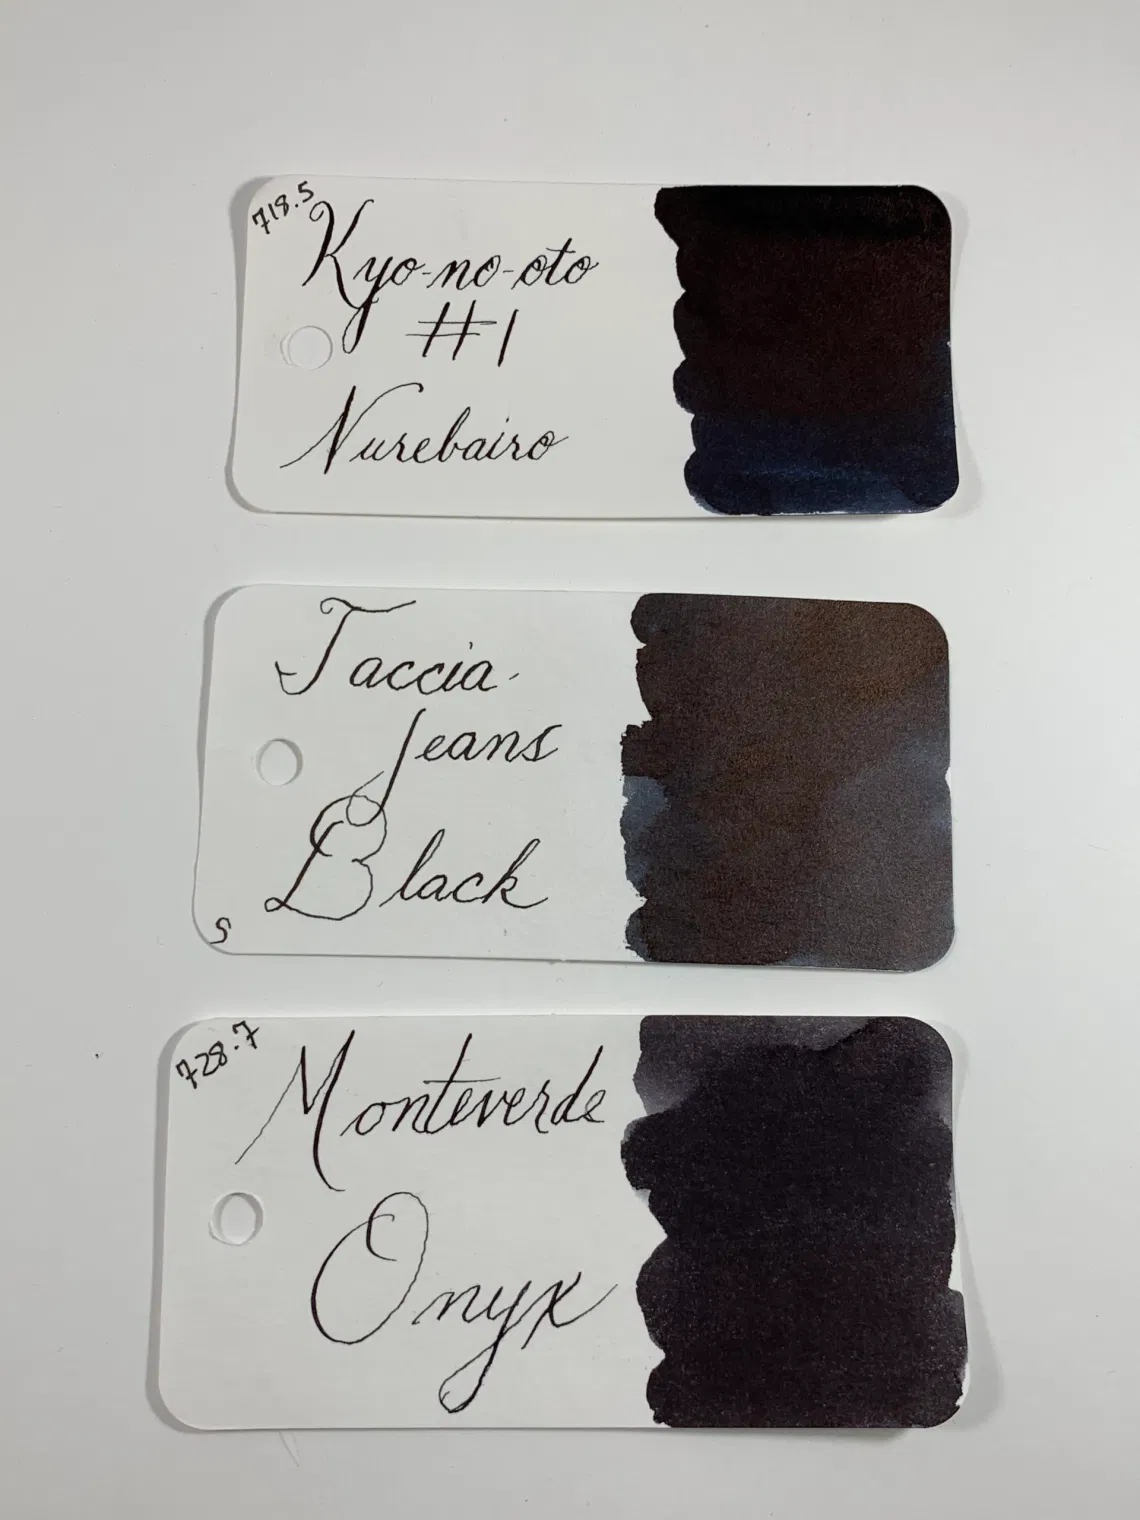 718.5
Kyo-no-oto
#1
Nurebairo
Taccia
Jeans
Black
S
728.7
Monteverde
Onyx